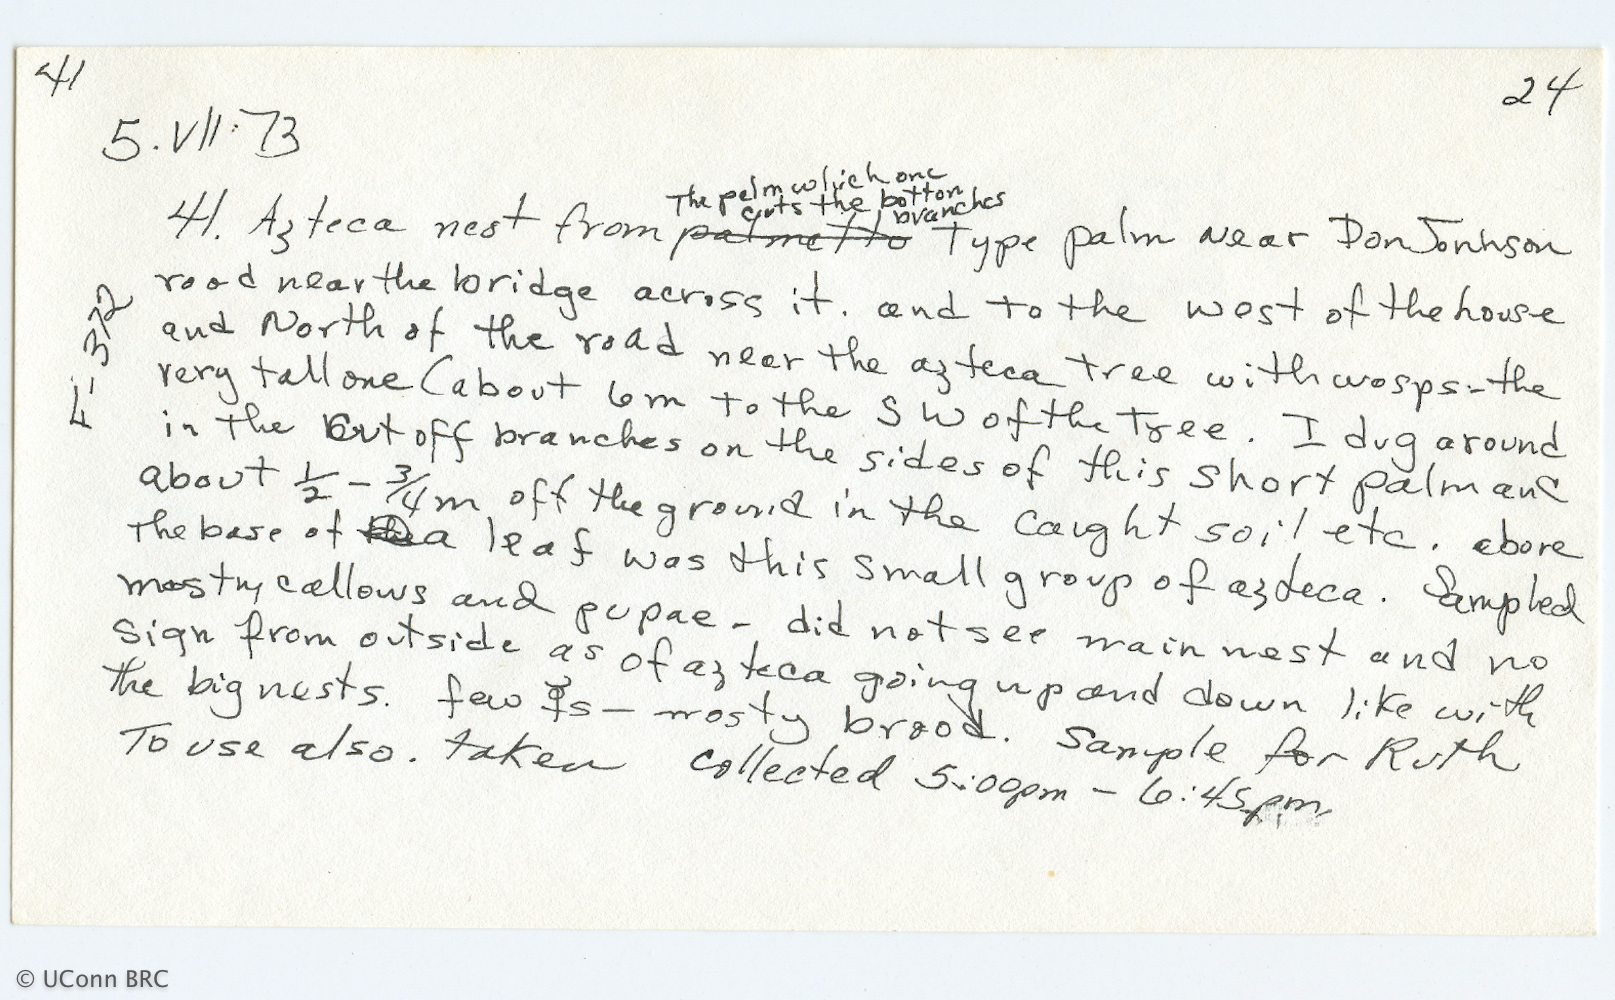 41
24
5.VII.73
The palm which one
cuts the bottom
branches
41. Azteca nest from palmetto Type palm Near Don Jonhson
road near the bridge across it. and to the west of the house
and North of the road near the azteca tree with wasps - the
very tall one (about 6m to the SW of the Tree. I dug around
in the cut off branches on the sides of this short palm and
about 1/2 - 3/4 m off the ground in the caught soil etc. above
the base of a leaf was this small group of azteca. Sampled
mostly callows and pupae - did not see main nest and no
sign from outside as of azteca going up and down like with
the big nests. few ☿s - mosty brood. Sample for Ruth
To use also. taken collected 5:00pm - 6:45pm.
F-372
© UConn BRC